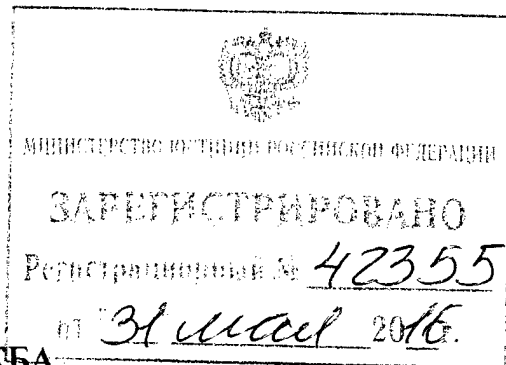 МИНИСТЕРСТВО ЮСТИЦИИ РОССИЙСКОЙ ФЕДЕРАЦИИ
ЗАРЕГИСТРИРОВАНО
Регистрационный № 42355
от "31 мая 2016г.